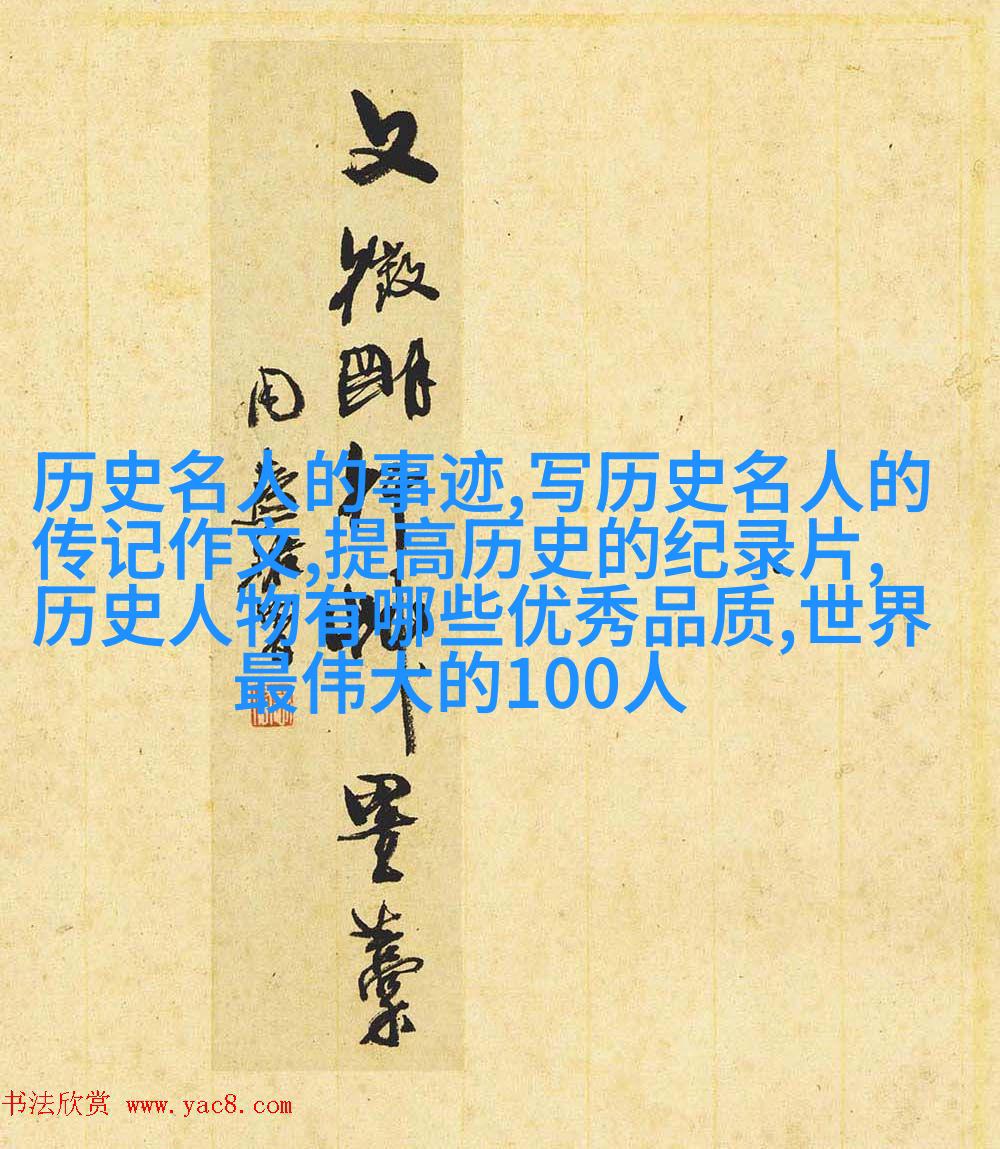 文徵明
墨藁
历史名人的事迹,写历史名人的
传记作文,提高历史的纪录片,
历史人物有哪些优秀品质,世界
最伟大的100人
书法欣赏 www.yac8.com